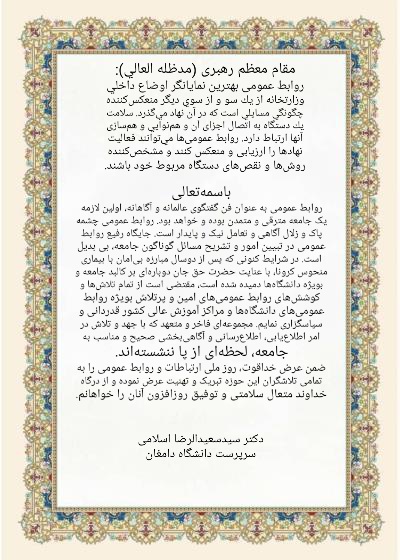 مقام معظم رهبری (مدظله العالي):
روابط عمومی بهترین نمایانگر اوضاع داخلي
وزارتخانه از یك سو و از سوي دیگر منعکس‌کننده
چگونگي مسایلي است که در آن نهاد مي‌گذرد. سلامت
یك دستگاه به اتصال اجزای آن و هم‌نوایي و هم‌سازي
آنها ارتباط دارد. روابط عمومی‌ها می‌توانند فعالیت
نهادها را ارزیابی و منعکس کنند و مشخص‌کننده
روش‌ها و نقص‌های دستگاه مربوط خود باشند.
باسمه‌تعالی
روابط عمومی به عنوان فن گفتگوی عالمانه و آگاهانه، اولین لازمه
یک جامعه مترقی و متمدن بوده و خواهد بود. روابط عمومی چشمه
پاک و زلال آگاهی و تعامل نیک و پایدار است. جایگاه رفیع روابط
عمومی در تبیین امور و تشریح مسائل گوناگون جامعه، بی بدیل
است. در شرایط کنونی که پس از دوسال مبارزه بی‌امان با بیماری
منحوس کرونا، با عنایت حضرت حق جان دوباره‌ای بر کالبد جامعه و
بویژه دانشگاه‌ها دمیده شده است، مقتضی است از تمام تلاش‌ها و
کوشش‌های روابط عمومی‌های امین و پرتلاش بویژه روابط
عمومی‌های دانشگاه‌ها و مراکز آموزش عالی کشور قدردانی و
سپاسگزاری نمایم. مجموعه‌ای فاخر و متعهد که با جهد و تلاش در
امر اطلاع‌یابی، اطلاع‌رسانی و آگاهی‌بخشی صحیح و مناسب به
جامعه، لحظه‌ای از پا ننشسته‌اند.
ضمن عرض خداقوت، روز ملی ارتباطات و روابط عمومی را به
تمامی تلاشگران این حوزه تبریک و تهنیت عرض نموده و از درگاه
خداوند متعال سلامتی و توفیق روزافزون آنان را خواهانم.
دکتر سیدسعیدالرضا اسلامی
سرپرست دانشگاه دامغان